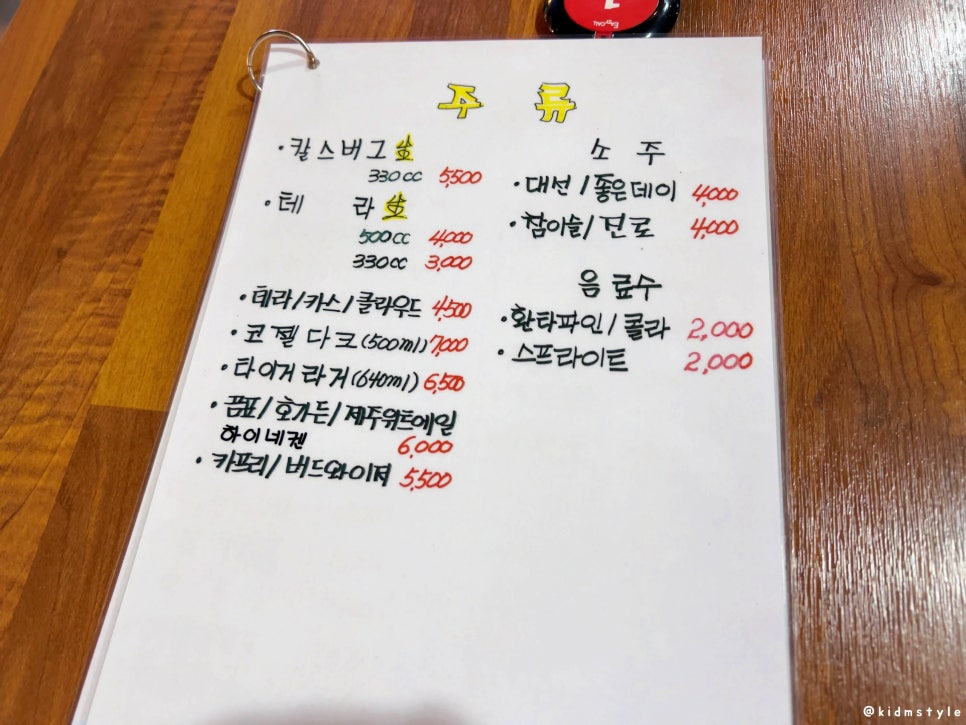 주 류
·칼스버그 生
330cc 5,500
·테 라 生
500cc 4,000
330cc 3,000
·테라/카스/클라우드 4,500
·코젤다크(500ml) 7,000
·타이거라거(640ml) 6,500
·곰표/호가든/제주위트에일
하이네켄 6,000
·카프리/버드와이져 5,500
소 주
·대선/좋은데이 4,000
·참이슬/진로 4,000
음료수
·환타파인/콜라 2,000
·스프라이트 2,000
1
@kidmstyle